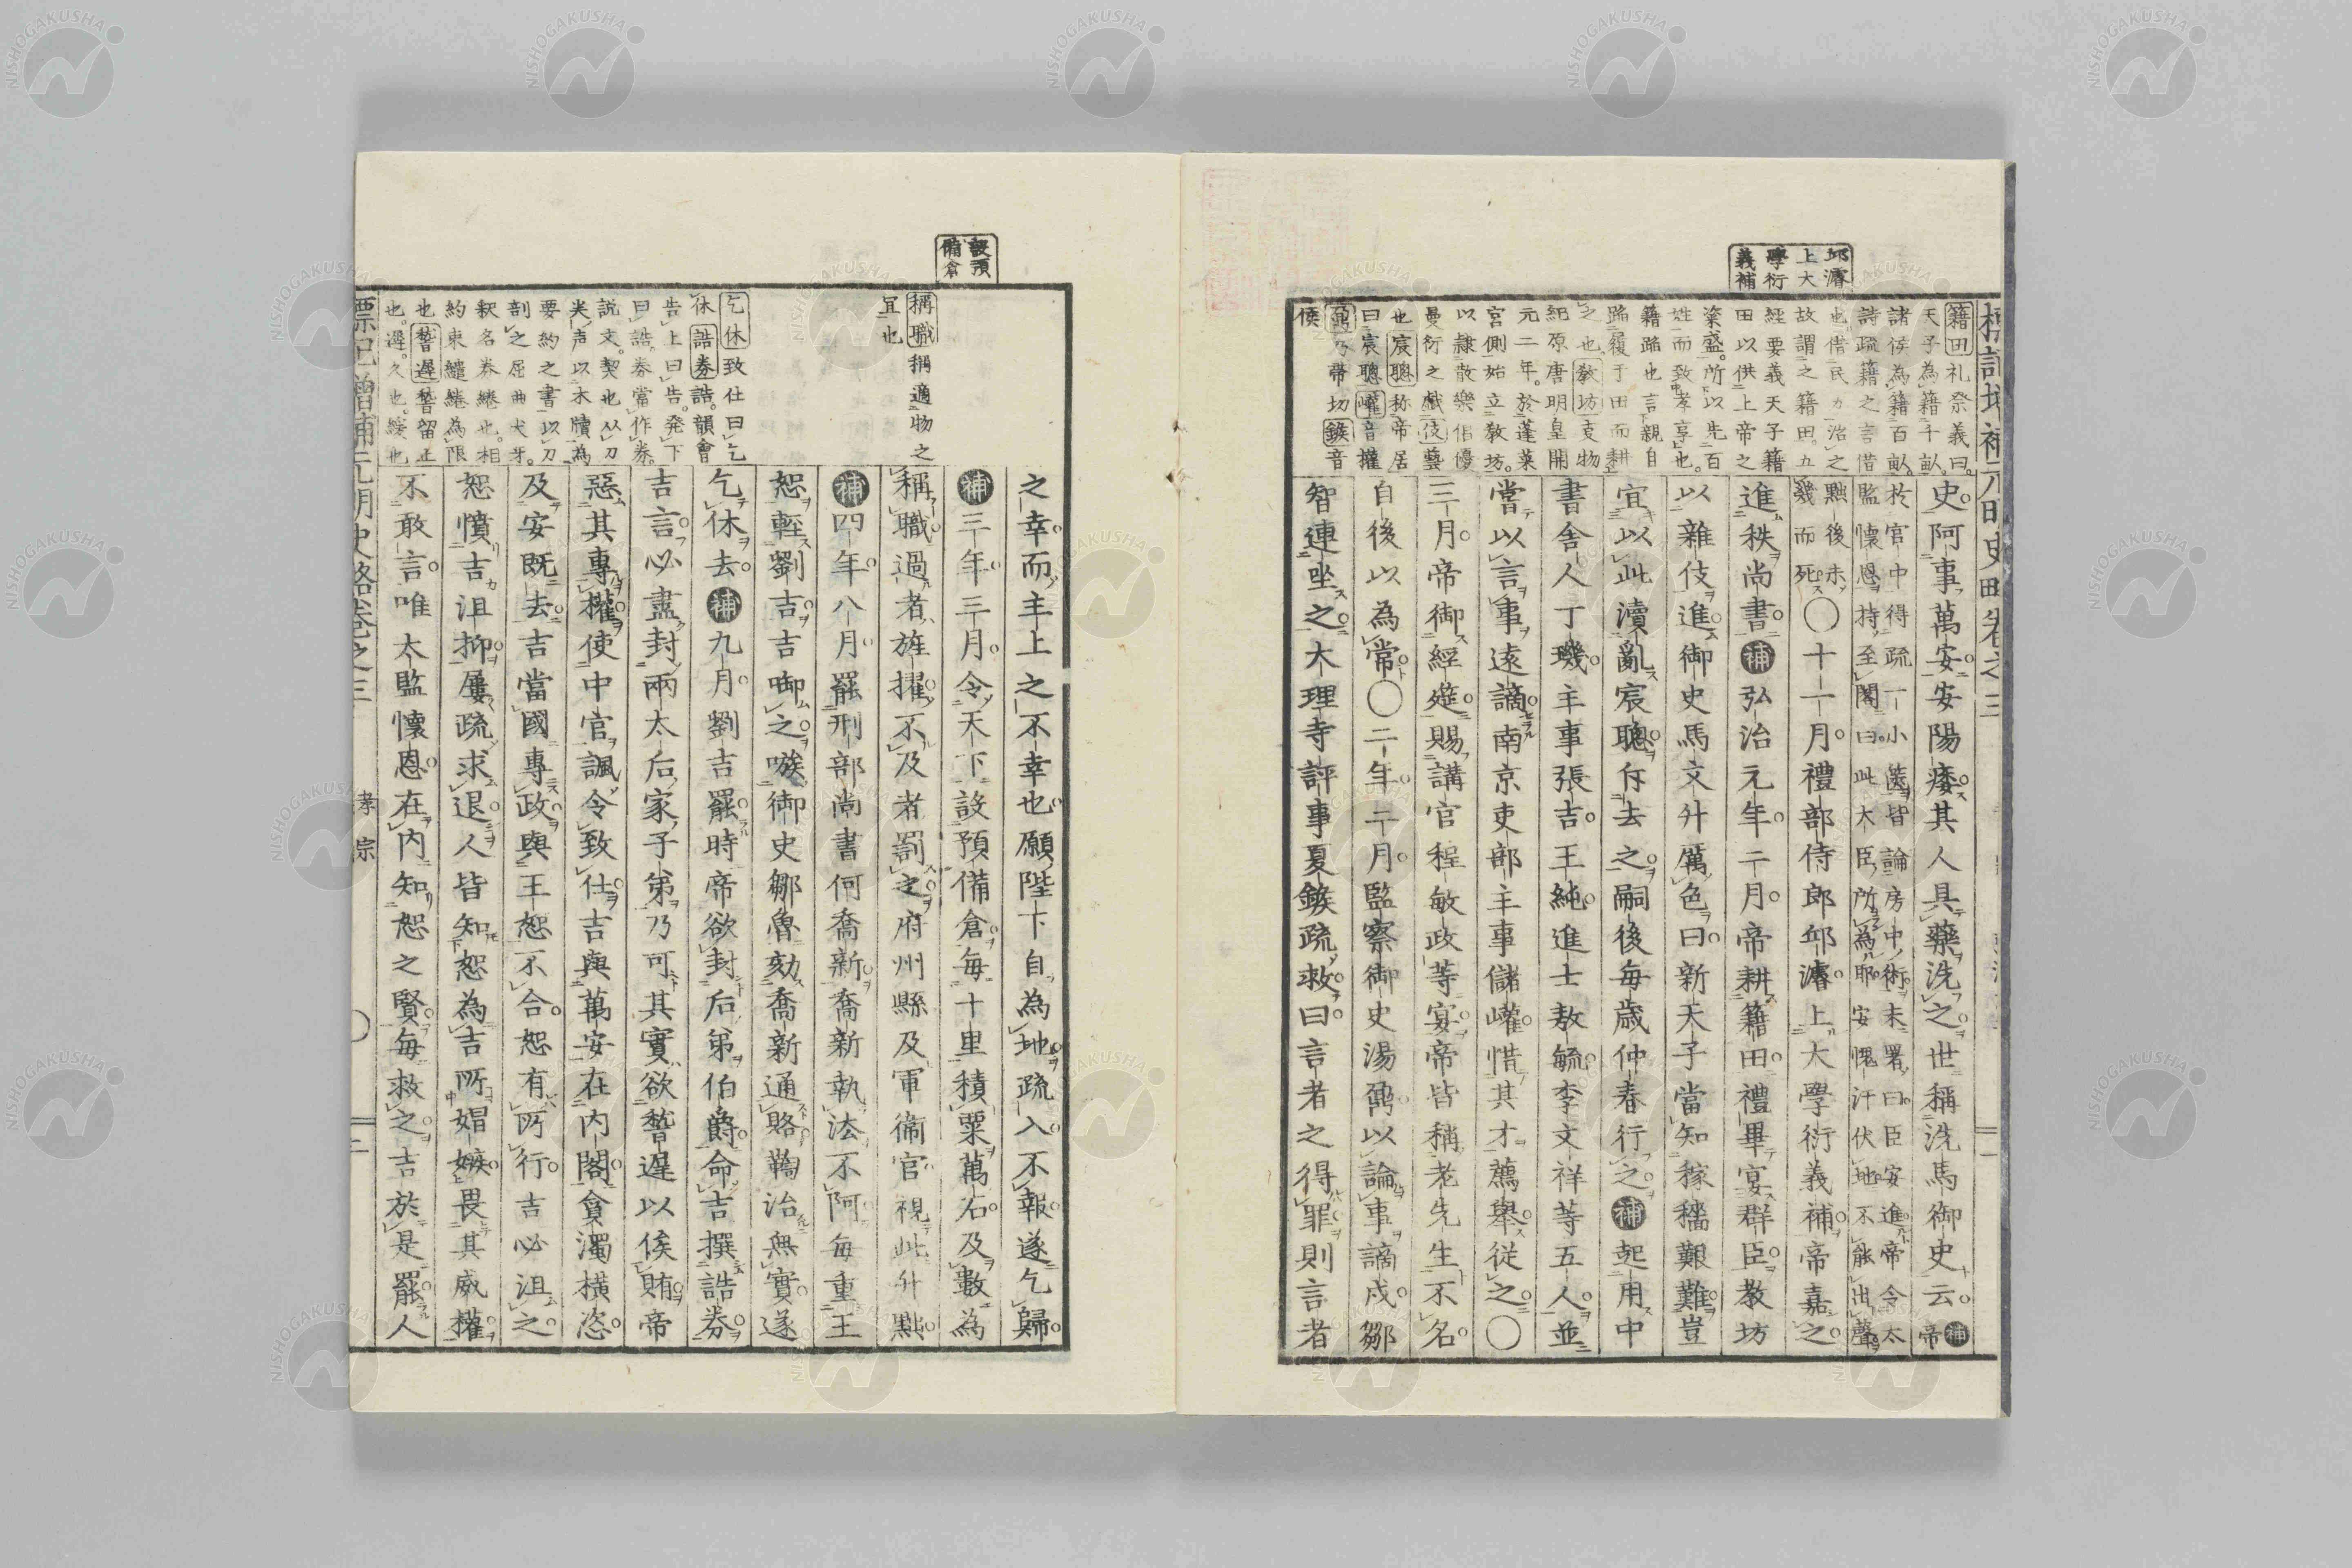 邱濬
上大
學衍
義補
籍田礼祭義曰
天子為籍千畝
諸侯為籍百畝
詩疏籍之言借
也借民力治之
故謂之籍田五
經要義天子籍
田以供上帝之
粢盛所以先百
姓而致孝享也
籍蹈也言親自
蹈履于田而耕
之也教坊吏物
紀原唐明皇開
元二年於蓬萊
宮側始立教坊
以隷散樂倡優
曼衍之戲伎藝
也宸聰称帝居
曰宸聰巏音權
鼐乃帶切鍭音
侯
史阿事萬安安陽痿其人具藥洗之世稱洗馬御史云補帝
於宮中得疏一小篋皆論房中術末署曰臣安進帝令太
監懷恩持至閣曰此大臣所為耶安愧汗伏地不能出聲
黜後未
幾而死〇十一月禮部侍郎邱濬上大學衍義補帝嘉之
進秩尚書補弘治元年二月帝耕籍田禮畢宴群臣教坊
以雜伎進御史馬文升厲色曰新天子當知稼穡艱難豈
宜以此瀆亂宸聰斥去之嗣後每歲仲春行之補起用中
書舍人丁璣主事張吉王純進士敖毓李文祥等五人並
嘗以言事遠謫南京吏部主事儲巏惜其才薦舉從之〇
三月帝御經筵賜講官程敏政等宴帝皆稱老先生不名
自後以為常〇二年二月監察御史湯鼐以論事謫戍鄒
智連坐之大理寺評事夏鍭疏救曰言者之得罪則言者
設預
備倉
稱職稱適物之
宜也
乞休致仕曰乞
休誥券誥韻會
告上曰告発下
曰誥券當作券
説文契也从刀
𠔉声以木牘為
要約之書以刀
剖之屈曲犬牙
釈名券綣也相
約束繾綣為限
也暫遲暫留止
也遲久也緩也
之幸而主上之不幸也願陛下自為地疏入不報遂乞歸
補三年三月令天下設預備倉每十里積粟萬石及數為
稱職過者旌擢不及者罰之府州縣及軍衞官視此升黜
補四年八月罷刑部尚書何喬新喬新執法不阿每重王
恕輕劉吉吉啣之嗾御史鄒魯劾喬新通賂鞫治無實遂
乞休去補九月劉吉罷時帝欲封后弟伯爵命吉撰誥券
吉言必盡封兩太后家子弟乃可其實欲暫遲以俟賄帝
惡其專權使中官諷令致仕吉與萬安在内閣貪濁橫恣
及安既去吉當國專政與王恕不合恕有所行吉必沮之
恕憤吉沮抑屢疏求退人皆知恕為吉所娼嫉畏其威權
不敢言唯太監懷恩在内知恕之賢每救之吉於是罷人
標記增補元明史略卷之三 孝宗 二